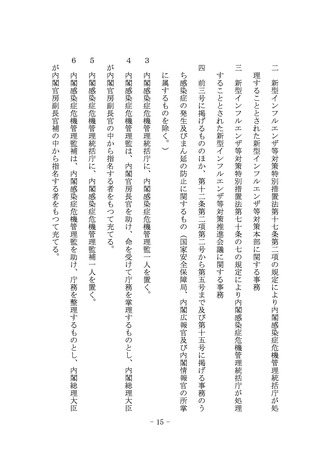 二　新型インフルエンザ等対策特別措置法第十七条第二項の規定により内閣感染症危機管理統括庁が処
理することとされた新型インフルエンザ等対策本部に関する事務
三　新型インフルエンザ等対策特別措置法第七十条の七の規定により内閣感染症危機管理統括庁が処理
することとされた新型インフルエンザ等対策推進会議に関する事務
四　前三号に掲げるもののほか、第十二条第二項第二号から第五号まで及び第十五号に掲げる事務のう
ち感染症の発生及びまん延の防止に関するもの（国家安全保障局、内閣広報官及び内閣情報官の所掌
に属するものを除く。）
３　内閣感染症危機管理統括庁に、内閣感染症危機管理監一人を置く。
４　内閣感染症危機管理監は、内閣官房長官を助け、命を受けて庁務を掌理するものとし、内閣総理大臣
が内閣官房副長官の中から指名する者をもって充てる。
５　内閣感染症危機管理統括庁に、内閣感染症危機管理監補一人を置く。
６　内閣感染症危機管理監補は、内閣感染症危機管理監を助け、庁務を整理するものとし、内閣総理大臣
が内閣官房副長官補の中から指名する者をもって充てる。
- 15 -